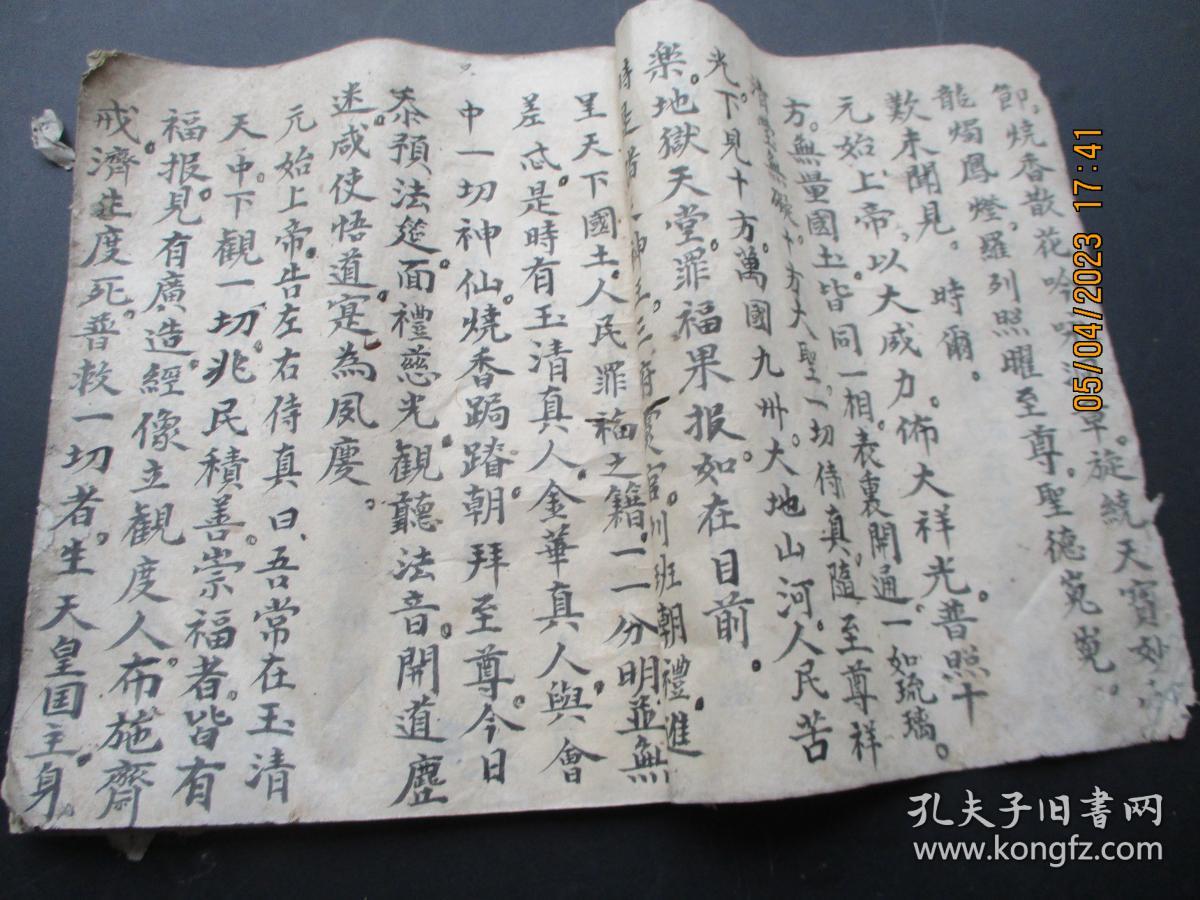 節。燒香散花吟咏洞章。旋繞天寶妙
龍燭鳳燈。羅列照曜至尊。聖德嵬嵬。
歎未聞見。時爾。
元始上帝、以大威力。佈大祥光。普照十
方。無量國土。皆同一相。表裏開通。一如琉璃。
十方大聖。一切侍真。隨至尊祥
光。下見十方。萬國九州。大地山河。人民苦
樂。地獄天堂。罪福果报。如在目前。
班朝禮。進
呈天下國土。人民罪福之籍。一一分明並無
差忒。是時有玉清真人。金華真人。與會
中一切神仙。燒香跼踏。朝拜至尊。今日
叅預法筵。面禮慈光。觀聽法音。開道塵
迷。咸使悟道。寔為夙慶。
元始上帝。告左右侍真曰、吾常在玉清
天中。下觀一切。兆民積善。崇福者。皆有
福报。見有廣造。經像立觀度人。布施齋
戒。濟生度死。普救一切者。生天皇国主身。
05/04/2023 17:41
孔夫子旧书网
www.kongfz.com